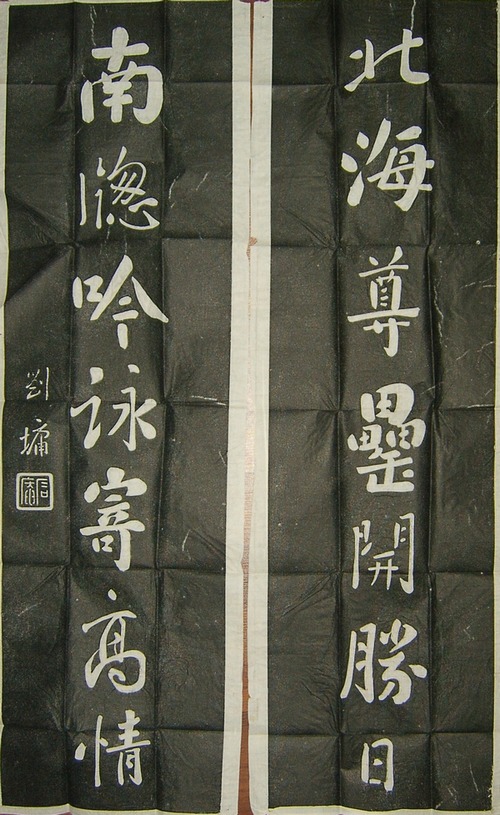 北海尊罍開勝日
南牕吟詠寄高情
劉墉